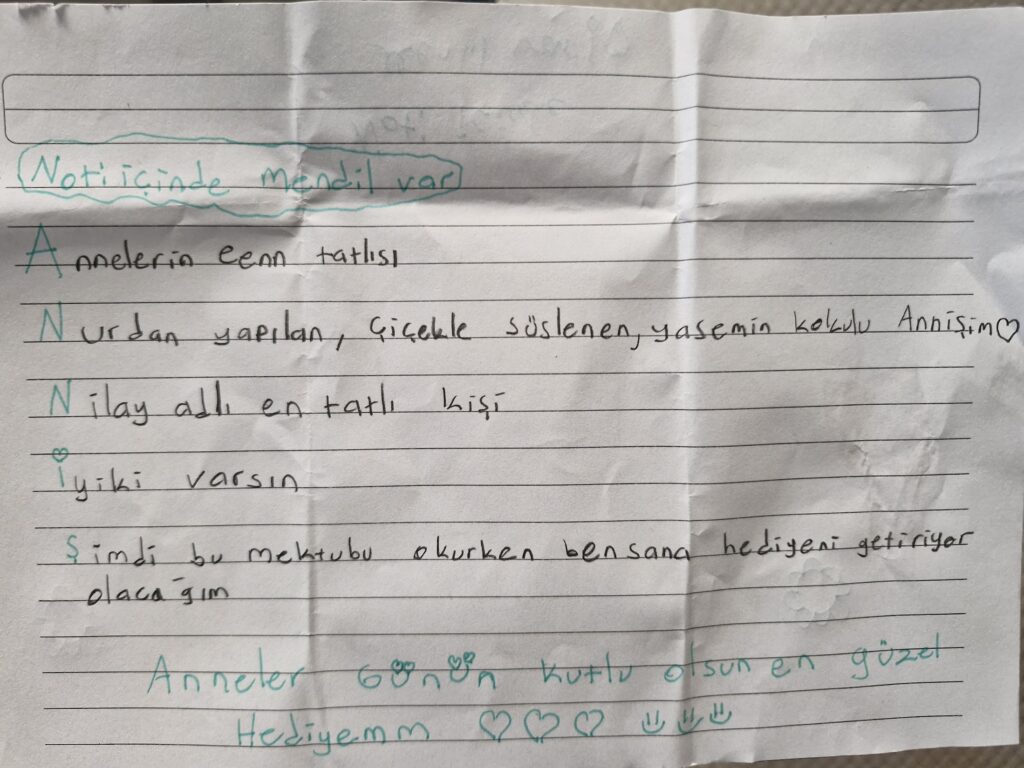 Not: içinde mendil var
Annelerin eenn tatlısı
Nurdan yapılan, çiçekle süslenen, yasemin kokulu Annişim♡
Nilay adlı en tatlı kişi
İyiki varsın
Şimdi bu mektubu okurken ben sana hediyeni getiriyor
olacağım
Anneler Günün kutlu olsun en güzel
Hediyemm ♡ ♡ ♡